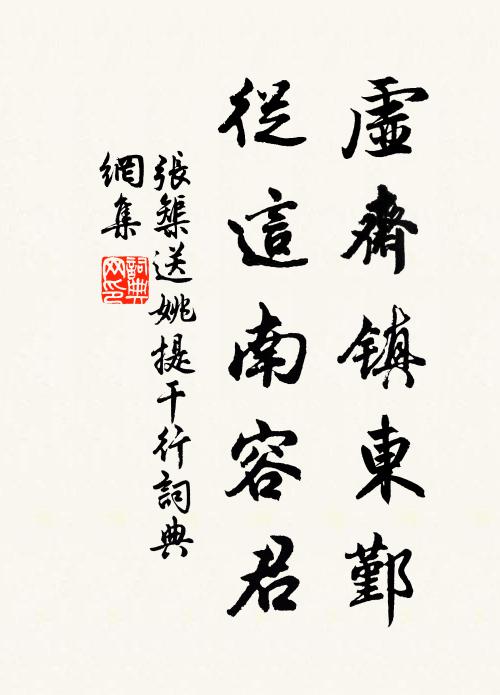 虛齋鎮東鄞
從這南容君
張榘送姚提干行詞典
網集
詞典
网印